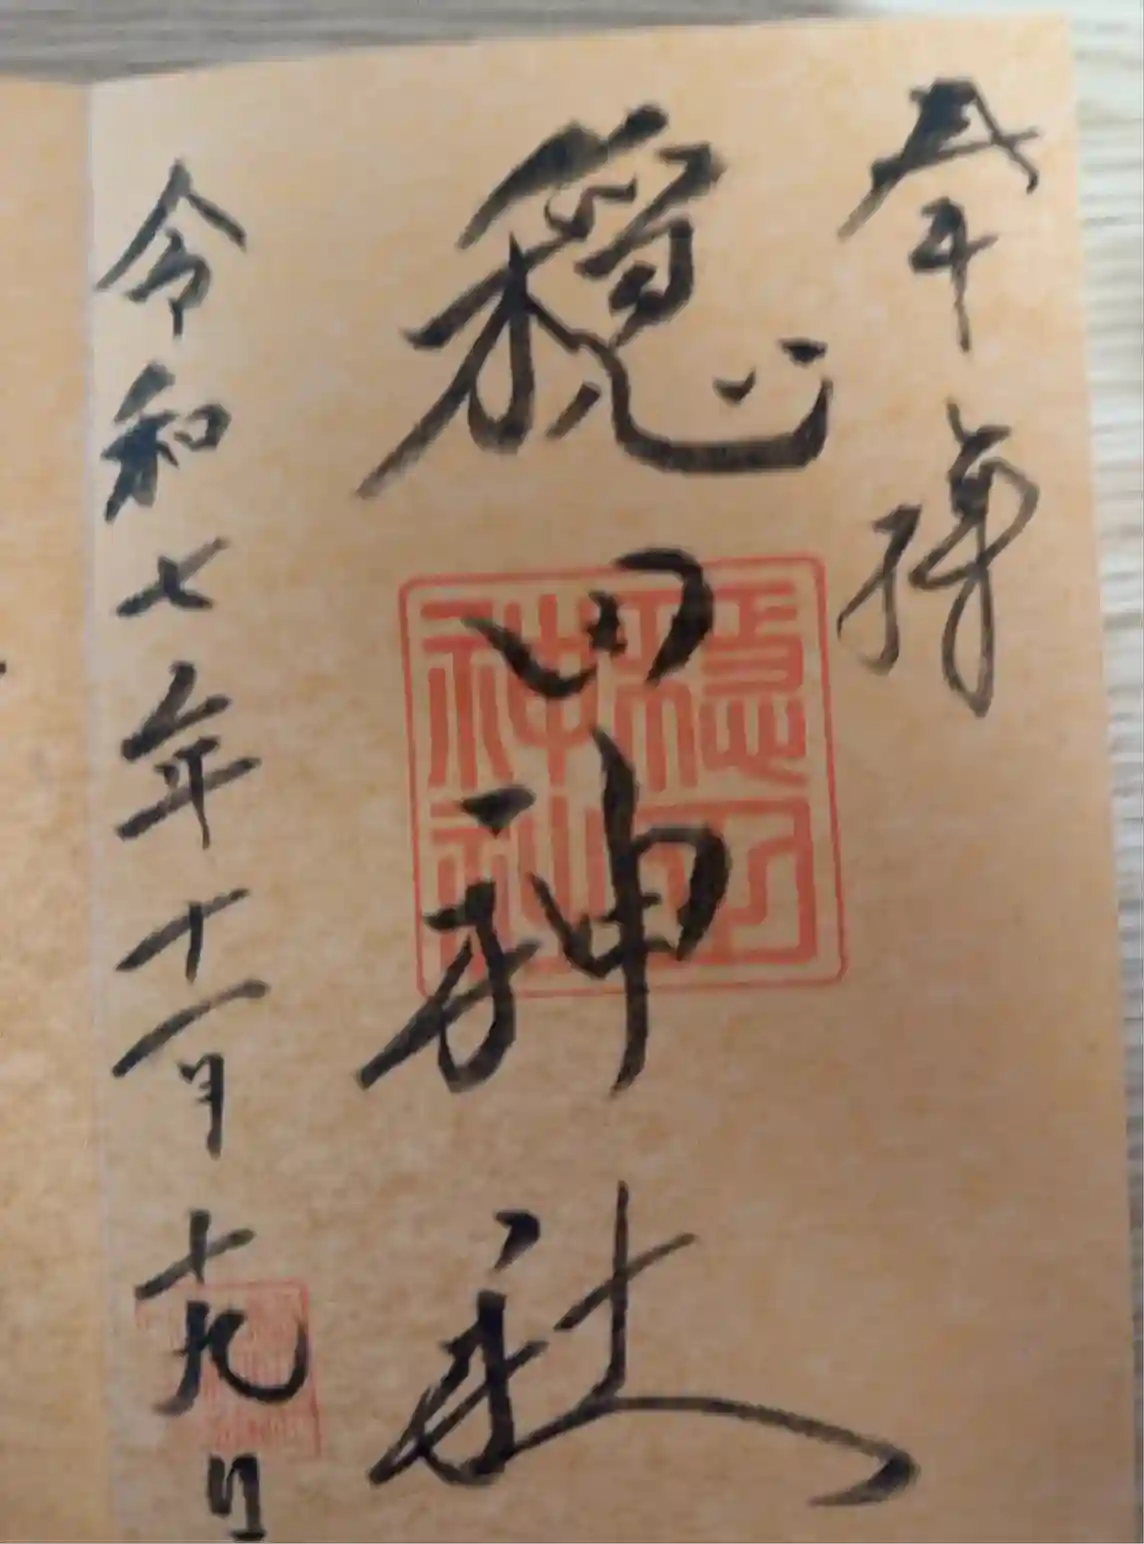 奉拝
穏田神社
令和七年十一月十九日
穏田神社